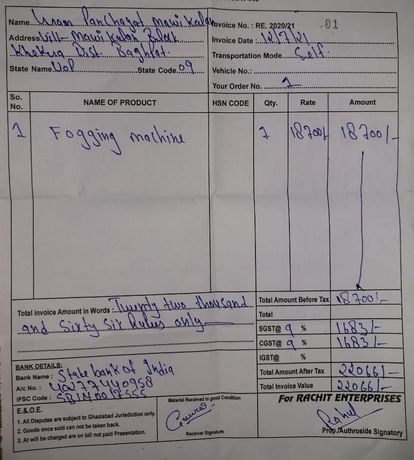 Name Gram Panchayat Mawi Kalan
Invoice No.: RE. 2020/21 01
Address Vill- Mawi Kalan Block
Invoice Date: 12/7/21
Khekra Dist. Baghpat.
Transportation Mode Self.
State Name U.P State Code. 09
Vehicle No.:
Your Order No. 1
So. No. NAME OF PRODUCT HSN CODE Qty. Rate Amount
1 Fogging machine 1 18700/- 18700/-
Total Invoice Amount in Words: Twenty two thousand
and Sixty Six Rules only
Total Amount Before Tax 18700/-
Total
SGST@ 9 % 1683/-
CGST@ 9 % 1683/-
IGST@ %
Total Amount After Tax 22066/-
Total Invoice Value 22066/-
BANK DETAILS:
Bank Name: State bank of India
A/c No.:
IFSC Code:
E.&O.E.
1. All Disputes are subject to Ghaziabad Jurisdiction only.
2. Goods once sold can not be taken back.
3. At will be charged are on bill not paid Presentation.
Material Received in good Condition
Receiver Signature
For RACHIT ENTERPRISES
Rahul
Prop./Authroside Signatory